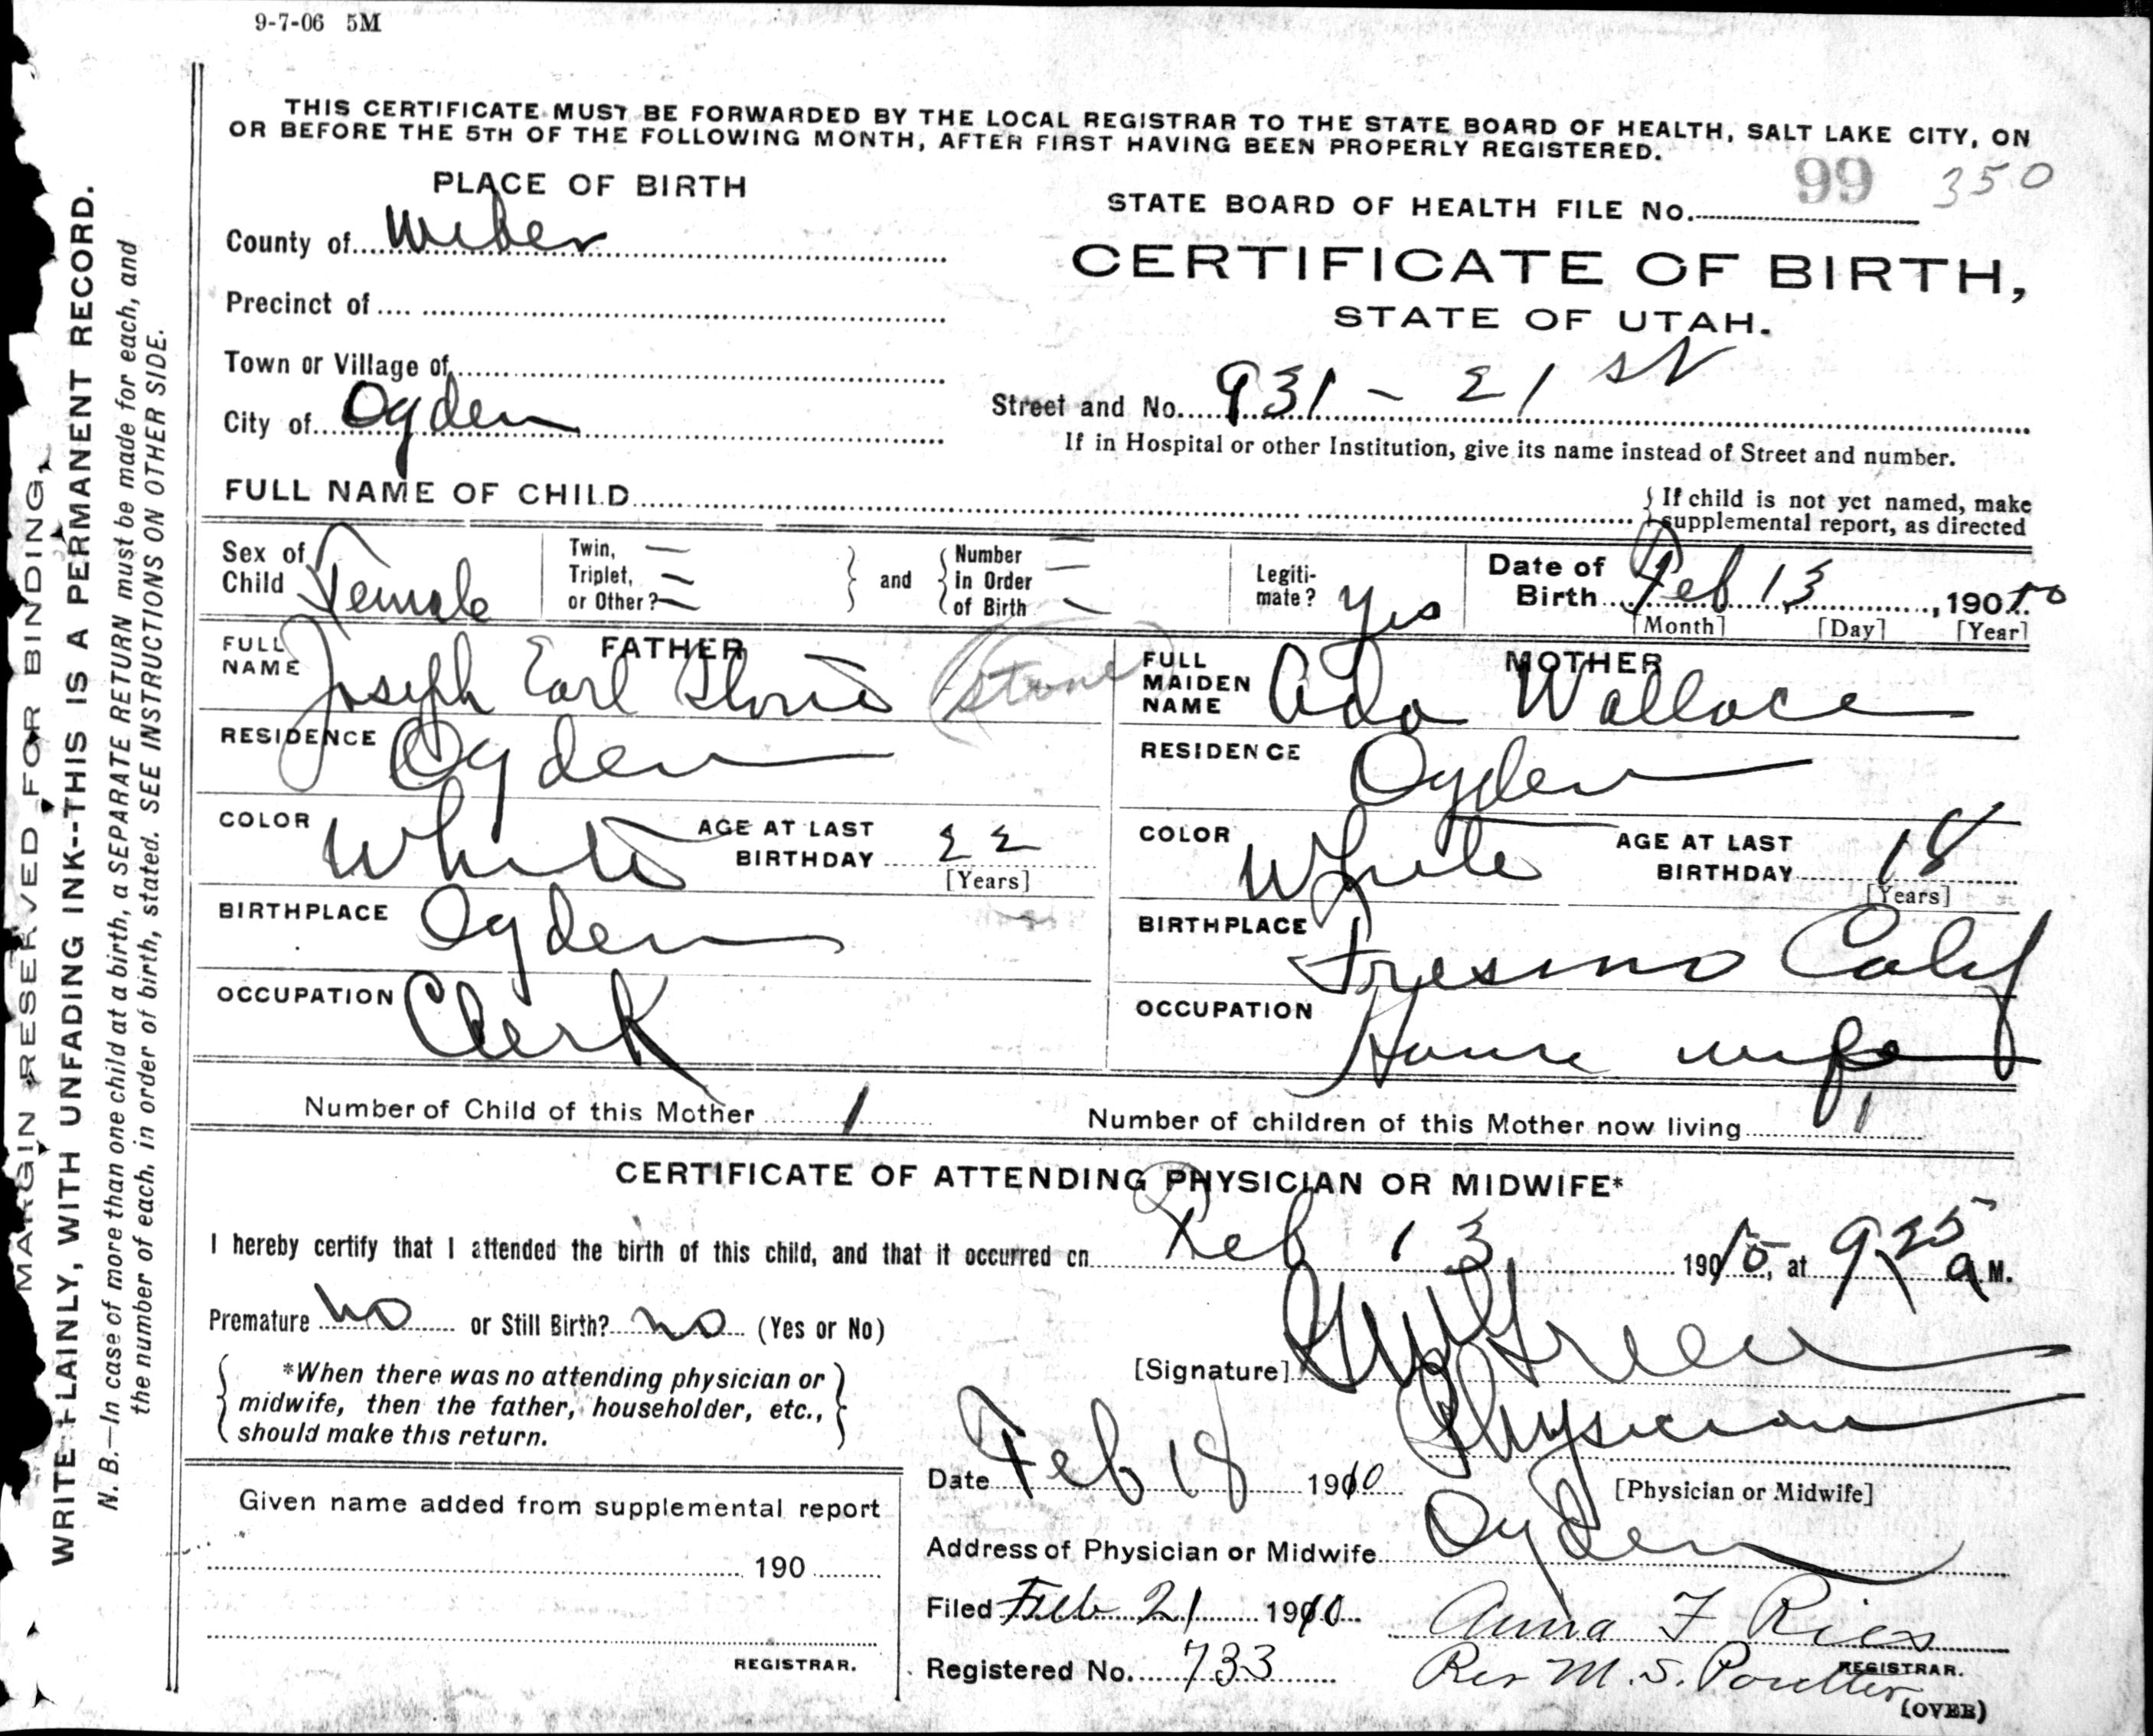 9-7-06 5M
THIS CERTIFICATE MUST BE FORWARDED BY THE LOCAL REGISTRAR TO THE STATE BOARD OF HEALTH, SALT LAKE CITY, ON
OR BEFORE THE 5TH OF THE FOLLOWING MONTH, AFTER FIRST HAVING BEEN PROPERLY REGISTERED.
PLACE OF BIRTH
County of Weber
Precinct of
Town or Village of
City of Ogden
STATE BOARD OF HEALTH FILE No. 99 350
CERTIFICATE OF BIRTH,
STATE OF UTAH.
Street and No. 931 - 21 st
If in Hospital or other Institution, give its name instead of Street and number.
FULL NAME OF CHILD
If child is not yet named, make
supplemental report, as directed
Sex of
Child Female
Twin, —
Triplet, —
or Other? —
and
Number —
in Order —
of Birth —
Legiti-
mate? Yes
Date of
Birth Feb 13, 1910
[Month] [Day] [Year]
FATHER
FULL
NAME Joseph Earl Stone (Stone)
RESIDENCE Ogden
COLOR White
AGE AT LAST
BIRTHDAY 22
[Years]
BIRTHPLACE Ogden
OCCUPATION Clerk
MOTHER
FULL
MAIDEN
NAME Ada Wallace
RESIDENCE Ogden
COLOR White
AGE AT LAST
BIRTHDAY 18
[Years]
BIRTHPLACE Fresno Calif
OCCUPATION House wife
Number of Child of this Mother 1
Number of children of this Mother now living 1
CERTIFICATE OF ATTENDING PHYSICIAN OR MIDWIFE*
I hereby certify that I attended the birth of this child, and that it occurred on Feb 13 1910, at 9 25 a M.
Premature no or Still Birth? no (Yes or No)
*When there was no attending physician or
midwife, then the father, householder, etc.,
should make this return.
[Signature] Green
Physician
[Physician or Midwife]
Date Feb 18 1910
Address of Physician or Midwife Ogden
Filed Feb 21 1910
Anna F Ries
REGISTRAR.
Registered No. 733
Per M. S. Poulter
(OVER)
Given name added from supplemental report
190
REGISTRAR.
MARGIN RESERVED FOR BINDING,
WRITE PLAINLY, WITH UNFADING INK--THIS IS A PERMANENT RECORD.
N. B.—In case of more than one child at a birth, a SEPARATE RETURN must be made for each, and
the number of each, in order of birth, stated. SEE INSTRUCTIONS ON OTHER SIDE.